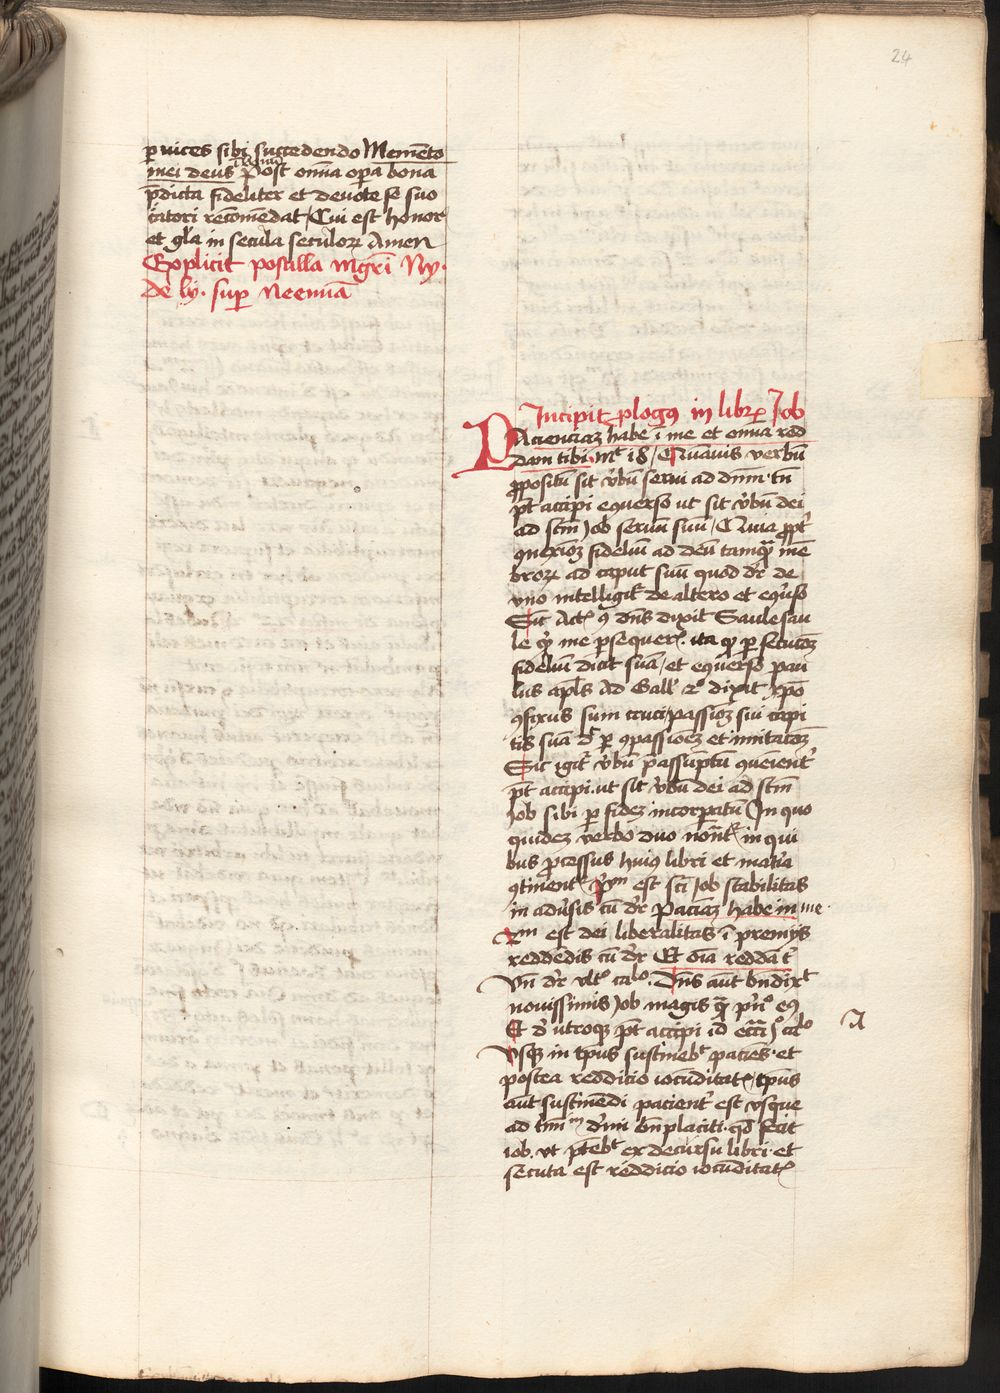 24
ꝑ vices sibi succedendo Memēto
mei deus ꝛcͣ Post om̄ia oꝑa bona
p̄dicta fideliter et deuote se suo
c̄atori recōmēdat / Cui est honor
et gl̄a in secula seculoꝝ Amen
Explicit postilla mgr̄i Ny.
de ly. suꝑ Neemiā
Incipit ꝓlogꝰ in libꝝ Job
Pacienciaꝫ habe ī me et omīa red
dam tibi. Mᵗ 18 / Quāuis verbū
ꝓpositū sit v̓bū serui ad dn̄m. tn̄
pt̄ accipi eqͦuerso ut sit v̓bū dei
ad sc̄m Job seruū suū / Quia ꝓpt̓
ꝯnexioꝫ fideliū ad deū tamqͣꝫ mē
broꝝ ad caput suū quod dr̄ de
vno intelligit̓ de altero et eqͦuerso
Sic Act. 9 dn̄s dixit Saule sau
le qͥd me ꝑsequeris. ita qͥ ꝑsecucōꝫ
fideliū dicit suā / et eqͦuerso pau
lus apl̄s Ad Gall̓ 2ͦ dixit xp̄o
ꝯfixus sum cruci / passioꝫ sui capi
tis suā dꝛ̄ ꝑ ꝯpassioeꝫ et imitacōꝫ
Sic igit̓ v̓bū p̄assūptū ꝯueient̓
pt̄ accipi. ut sit v̓bū dei ad sc̄m
Job sibi ꝑ fidez incorꝑatū / In quo
quidez verbo duo nōnt̓ in qui
bus ꝓcessus huiꝰ libri et mat̓ia
ꝯtinent̓ p̓mͫ est sc̄i Job stabilitas
in adu̓sis cū dr̄ Paciāꝫ habe in me.
2ͫ est dei liberalitas ī premijs
reddēdis cū dr̄ Et oīa reddā t̓
Vn̄ dr̄ vlt̓ caͦ. Dn̄s aūt bn̄dixͭ
nouissimis Job magis qͣꝫ pͥnͦ eiꝰ
Et d̓ utroqꝫ pt̄ accipi id Ecc̄i jͦ caͦ
Vsqꝫ in tp̄us sustinebͭ paciēs. et
postea reddicio iocūditat̓. tp̄us
aūt sustinēdi pacient̓ est vsque
ad tm̄īͫ diuīi bn̄placiti. qd̄ fecit
iob. vt ptꝫebͭ ex decursu libri. et
secuta est reddicio iocūditat̓